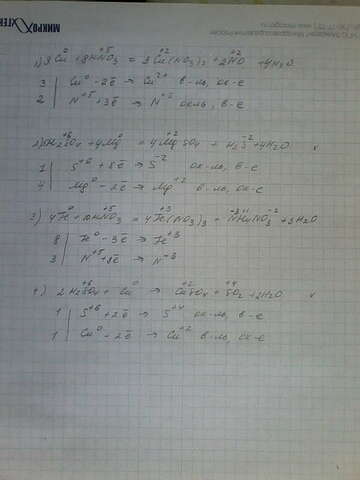 МИКРО
1) 3Cu⁰ + 8HN⁺⁵O₃ = 3Cu⁺²(NO₃)₂ + 2N⁺²O + 4H₂O
3 | Cu⁰ - 2ē → Cu²⁺ в-ль, ок-е
2 | N⁺⁵ + 3ē → N⁺² ок-ль, в-е
2) H₂S⁺⁶O₄ + 4Mg⁰ = 4Mg⁺²SO₄ + H₂S⁻² + 4H₂O
1 | S⁺⁶ + 8ē → S⁻² ок-ль, в-е
4 | Mg⁰ - 2ē → Mg⁺² в-ль, ок-е
3) Fe⁰ + HN⁺⁵O₃ = Fe⁺³(NO₃)₃ + NH₄NO₃ + 3H₂O
8 | Fe⁰ - 3ē → Fe⁺³
3 | N⁺⁵ + 8ē → N⁻³
4) 2H₂S⁺⁶O₄ + Cu⁰ → Cu⁺²SO₄ + S⁺⁴O₂ + 2H₂O
1 | S⁺⁶ + 2ē → S⁺⁴ ок-ль, в-е
1 | Cu⁰ - 2ē → Cu⁺² в-ль, ок-е